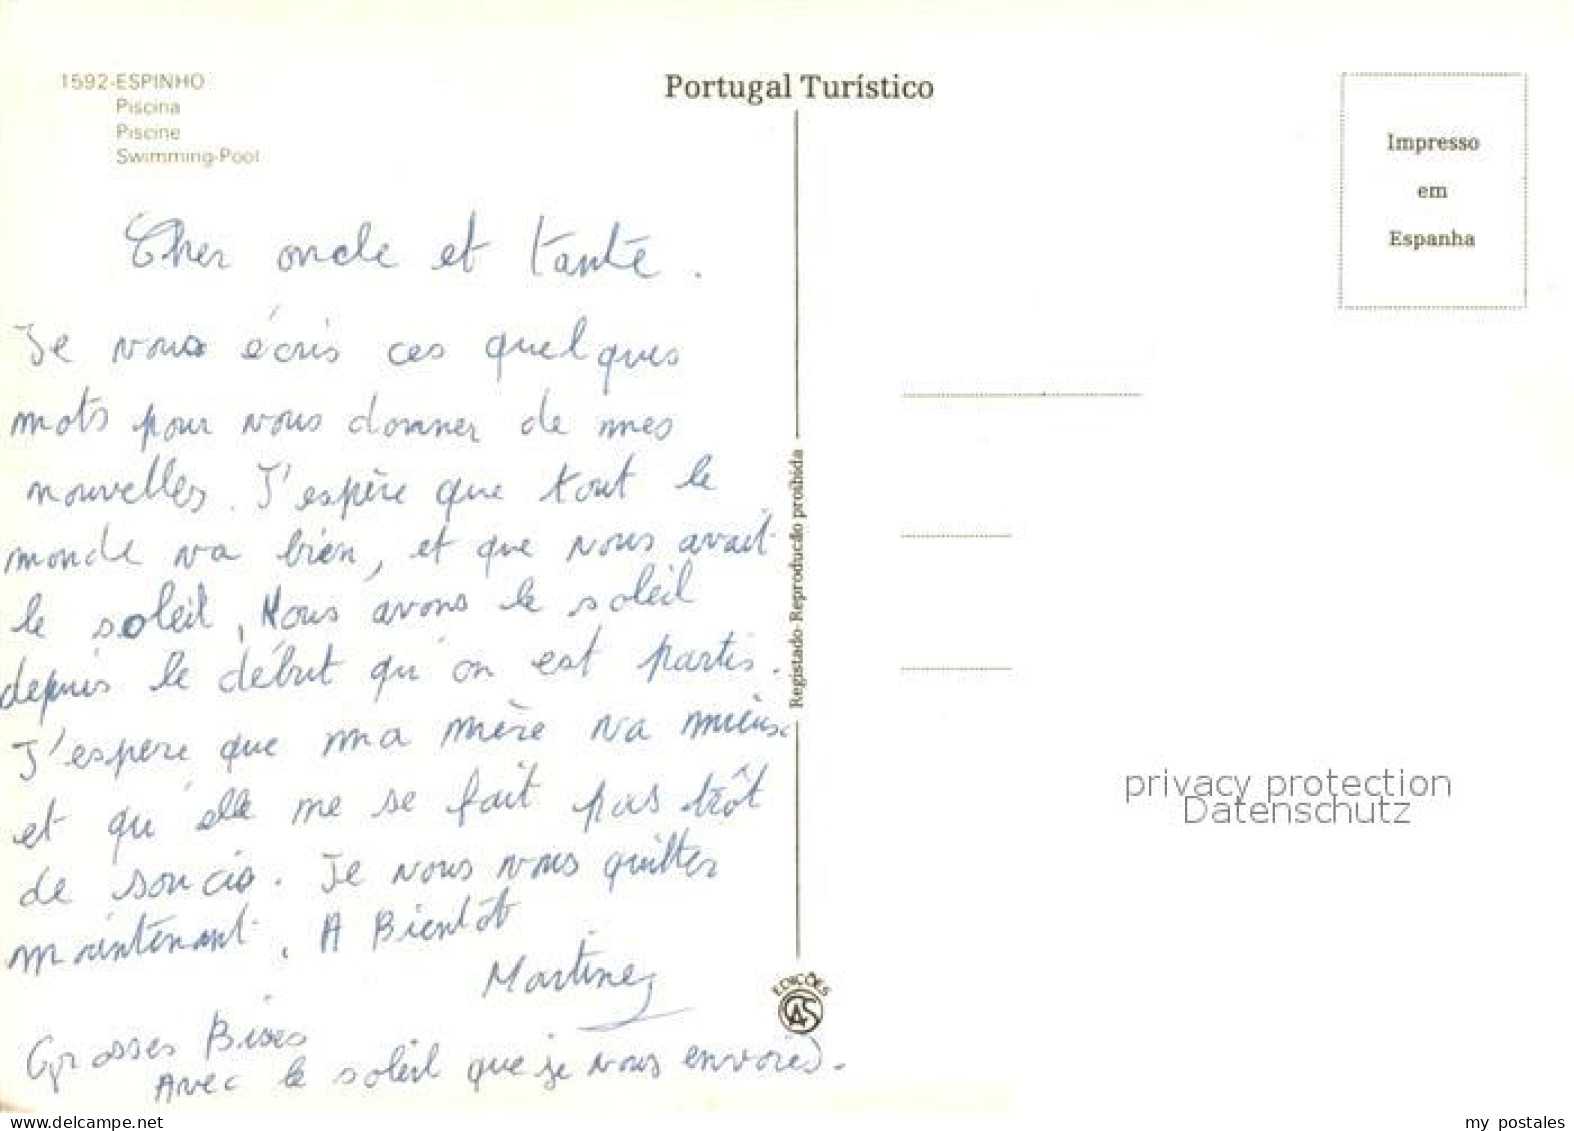 1592-ESPINHO
Piscina
Piscine
Swimming-Pool
Portugal Turístico
Impresso
em
Espanha
Cher oncle et tante.
Je vous écris ces quelques
mots pour vous donner de mes
nouvelles. J'espère que tout le
monde va bien, et que vous avait
le soleil, Nous avons le soleil
depuis le début qu'on est partis.
J'espère que ma mère va mieux
et qu'elle me se fait pas trôt
de soucis. Je vous vous quittes
maintenant. A Bientôt
Martine
Grosses Bises
Avec le soleil que je vous envoies.
Registado-Reprodução proibida
EDIÇÕES
CAS
privacy protection
Datenschutz
www.delcampe.net
my postales